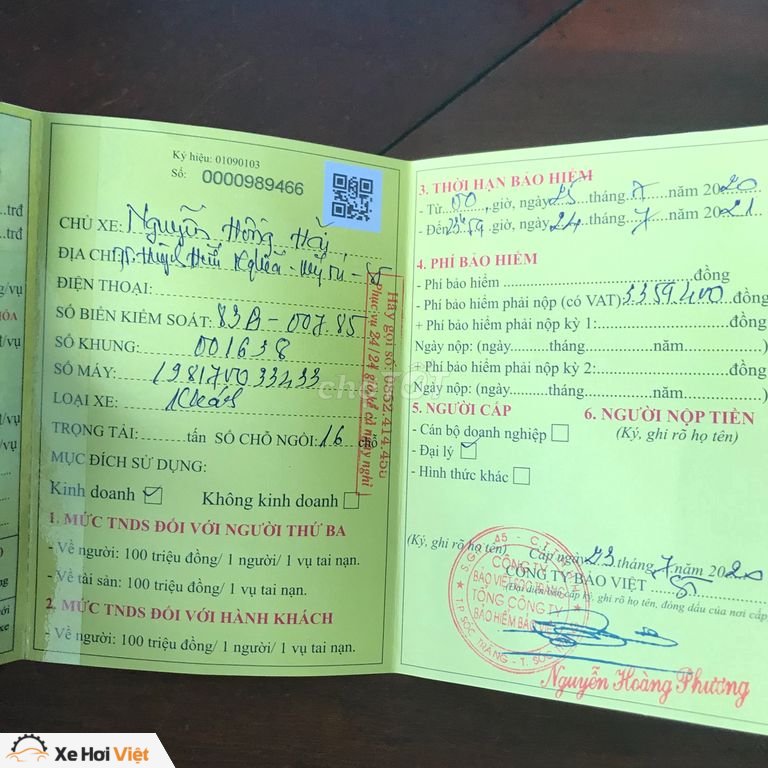 ...trđ
...trđ
g/vụ
HÓA
đ/vụ
đ/vụ
g/vụ
g/vụ
Ký hiệu: 01090103
Số: 0000989466
CHỦ XE: Nguyễn Hồng Hải
ĐỊA CHỈ: Huỳnh Hữu Nghĩa - Mỹ Tú - ST
ĐIỆN THOẠI:
SỐ BIỂN KIỂM SOÁT: 83B - 007.85
SỐ KHUNG: 001638
SỐ MÁY: 1981700 33433
LOẠI XE: Khách
TRỌNG TẢI:.........tấn SỐ CHỖ NGỒI: 16 chỗ
MỤC ĐÍCH SỬ DỤNG:
Kinh doanh ☑ Không kinh doanh ☐
1. MỨC TNDS ĐỐI VỚI NGƯỜI THỨ BA
- Về người: 100 triệu đồng/ 1 người/ 1 vụ tai nạn.
- Về tài sản: 100 triệu đồng/ 1 vụ tai nạn.
2. MỨC TNDS ĐỐI VỚI HÀNH KHÁCH
- Về người: 100 triệu đồng/ 1 người/ 1 vụ tai nạn.
Hãy gọi số: 0852.414.450
Phục vụ 24/24 giờ kể cả ngày nghỉ
chợTỐT
3. THỜI HẠN BẢO HIỂM
- Từ 00 giờ, ngày 25 tháng 7 năm 2020
- Đến 23h59 giờ, ngày 24 tháng 7 năm 2021
4. PHÍ BẢO HIỂM
- Phí bảo hiểm ............đồng
- Phí bảo hiểm phải nộp (có VAT) 3359.400 đồng
+ Phí bảo hiểm phải nộp kỳ 1:............đồng
Ngày nộp: (ngày.........tháng.........năm............)
+ Phí bảo hiểm phải nộp kỳ 2:............đồng
Ngày nộp: (ngày.........tháng.........năm............)
5. NGƯỜI CẤP
- Cán bộ doanh nghiệp ☐
- Đại lý ☑
- Hình thức khác ☐
6. NGƯỜI NỘP TIỀN
(Ký, ghi rõ họ tên)
(Ký, ghi rõ họ tên)
Cấp ngày 23 tháng 7 năm 2020
CÔNG TY BẢO VIỆT ST
(Đại diện bán cấp ký, ghi rõ họ tên, đóng dấu của nơi cấp)
CÔNG TY
BẢO VIỆT SÓC TRĂNG
TỔNG CÔNG TY
BẢO HIỂM BẢO VIỆT
TP SÓC TRĂNG - T. SÓC
Nguyễn Hoàng Phương
Xe Hơi Việt